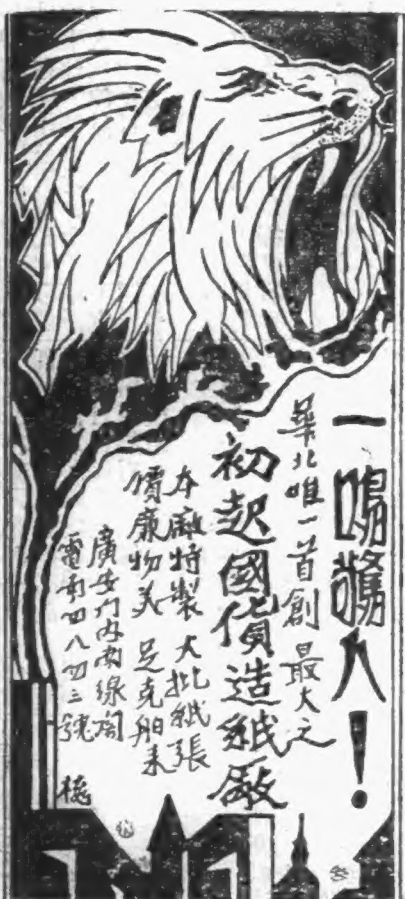 一鳴驚人！
華北唯一首創 最大之
初起國貨造紙廠
本廠特製 大批紙張
價廉物美 足克舶来
廣安门内南線閣
電南四八四三號